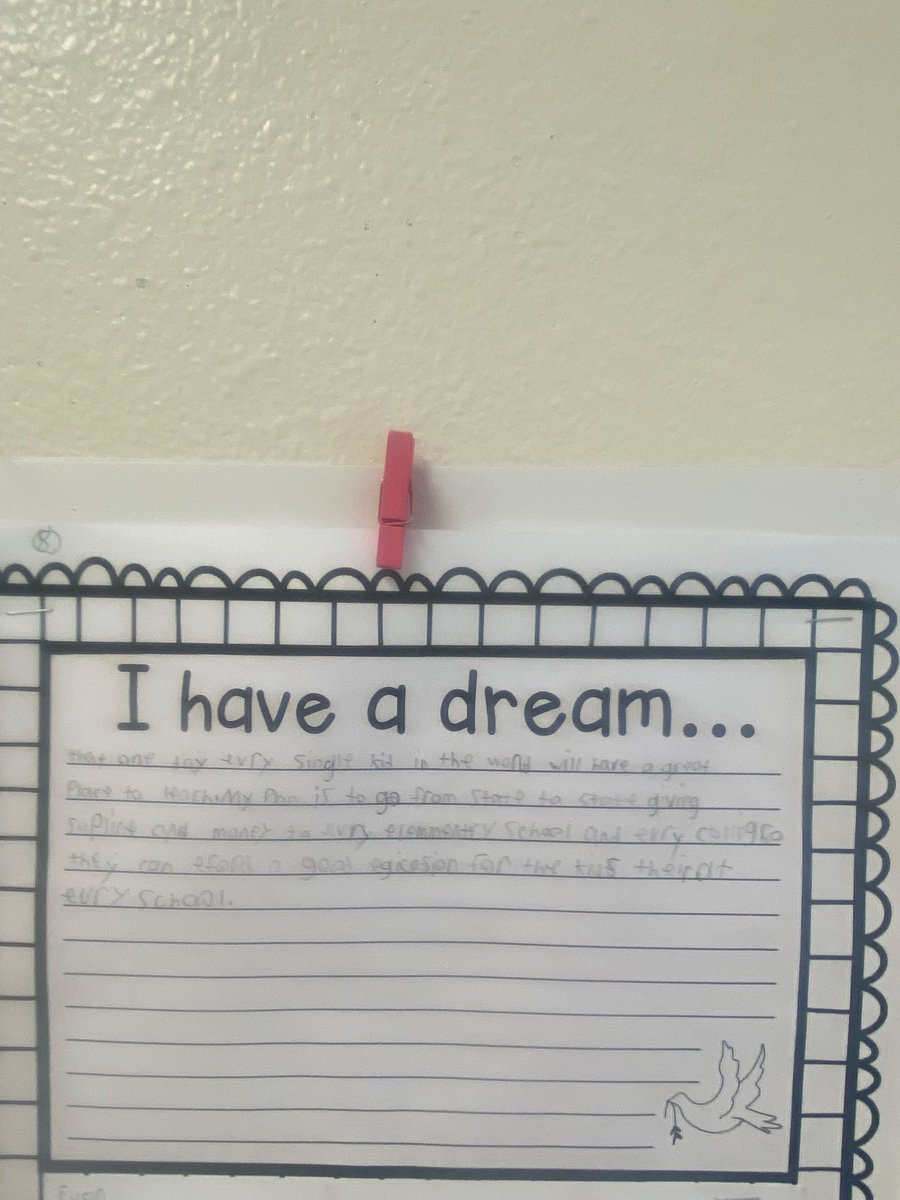 8
I have a dream...
that one day evry single kid in the world will have a great
place to teach. My Plan is to go from State to State giving
suplies and money to evry elementry School and evry collige so
they can a good for the kids
evry School.